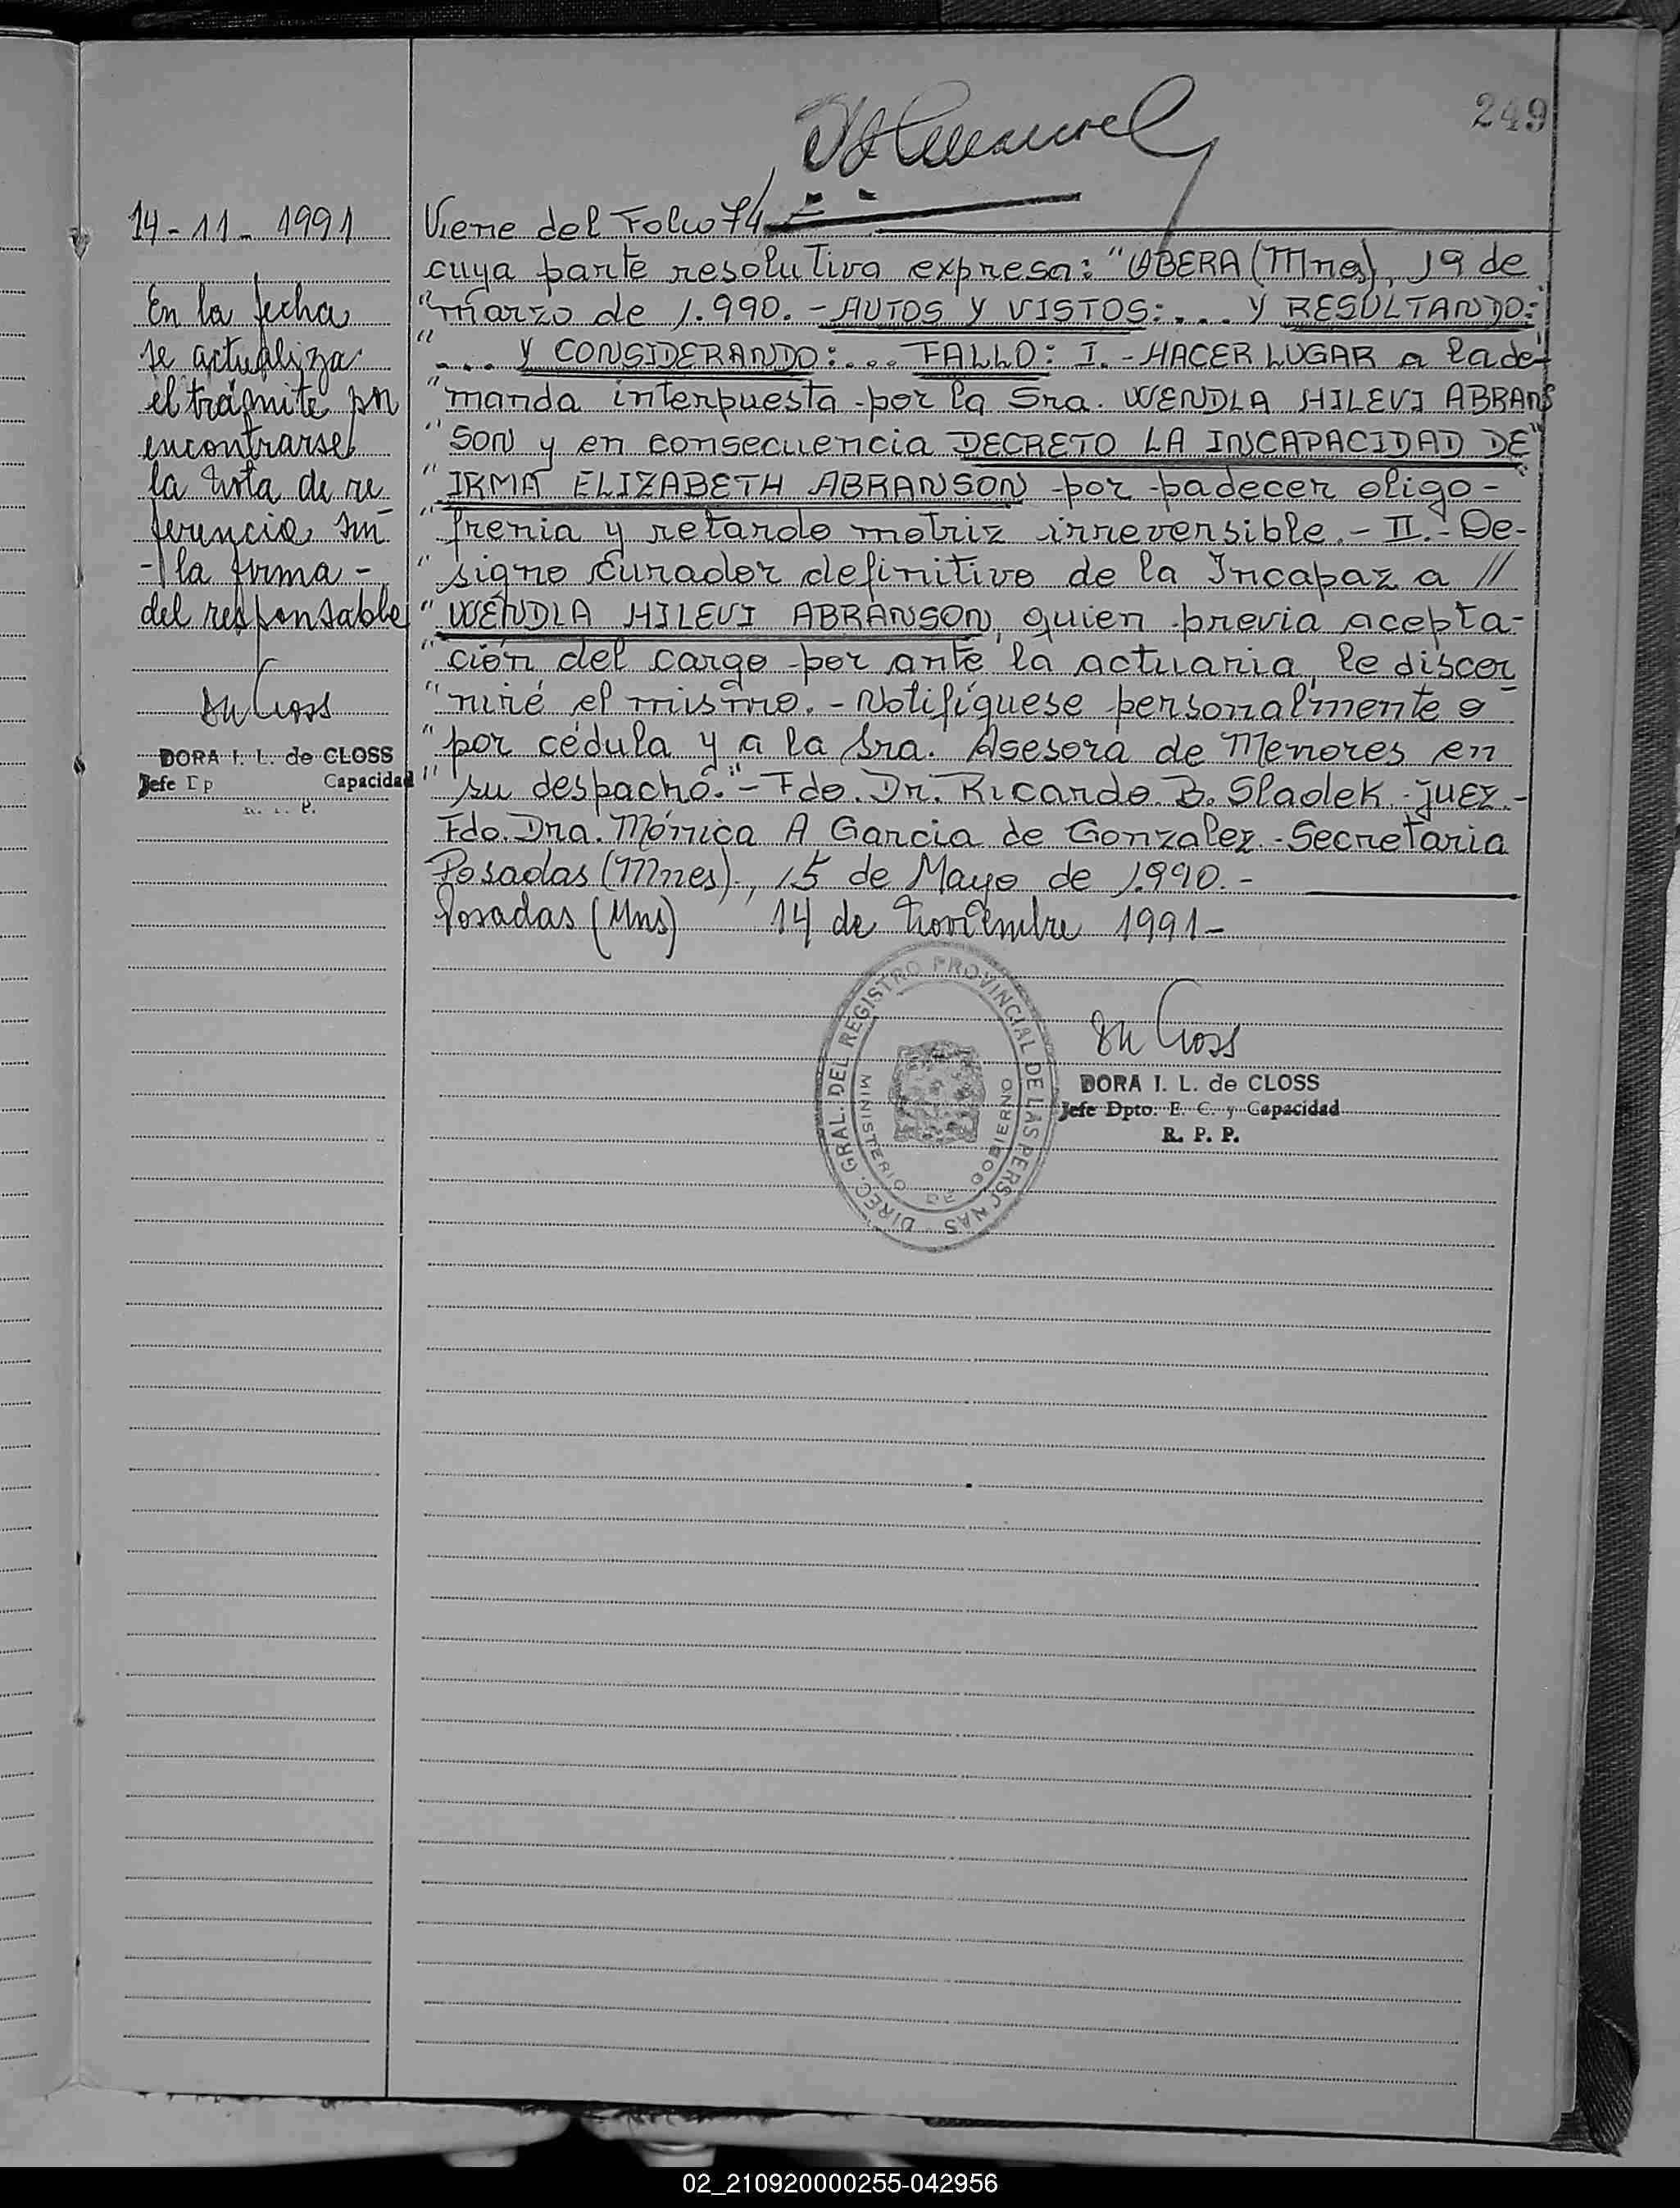 249
14-11-1991
En la fecha
se actualiza
el trámite por
encontrarse
la nota de re
ferencia sin
- la firma -
del responsable
DORA I. L. de CLOSS
Jefe Dp Capacidad
R. P. P.
Viene del Folio 74
cuya parte resolutiva expresa: "OBERA (Mnes), 19 de
"marzo de 1.990. - AUTOS Y VISTOS: .... Y RESULTANDO:
"... Y CONSIDERANDO: ... FALLO: I. - HACER LUGAR a la de-
"manda interpuesta por la Sra. WENDLA HILEVI ABRAN
"SON y en consecuencia DECRETO LA INCAPACIDAD DE
"IRMA ELIZABETH ABRANSON por padecer oligo-
"frenia y retardo motriz irreversible. - II. - De-
"signo curador definitivo de la Incapaz a //
"WENDLA HILEVI ABRANSON, quien previa acepta-
"ción del cargo por ante la actuaria, le discer
"niré el mismo. - Notifíquese personalmente o
"por cédula y a la Sra. Asesora de Menores en
"su despacho." - Fdo. Dr. Ricardo B. Sladek - juez. -
Fdo. Dra. Mónica A Garcia de Gonzalez - Secretaria
Posadas (Mnes), 15 de Mayo de 1.990. -
Posadas (Mns) 14 de Noviembre 1991 -
DIREC. GRAL. DEL REGISTRO PROVINCIAL DE LAS PERSONAS
MINISTERIO DE GOBIERNO
DORA I. L. de CLOSS
Jefe Dpto. E. C. y Capacidad
R. P. P.
02_210920000255-042956